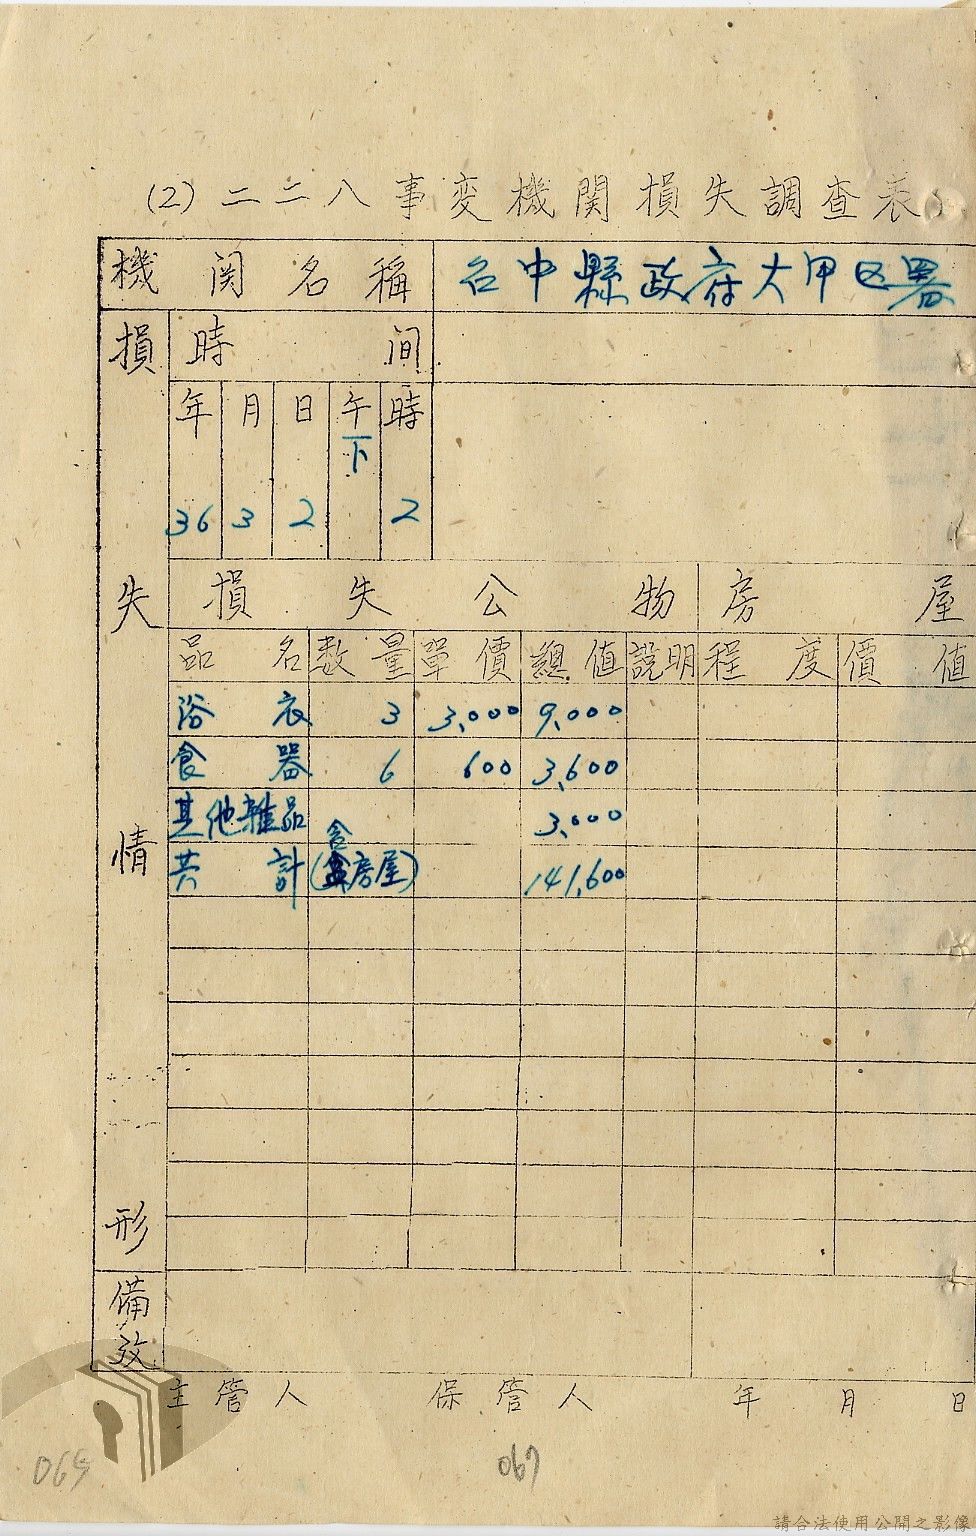 (2)二二八事変機関損失調查表
機関名稱 台中縣政府大甲区署
損 時 间
年 月 日 午 時
下
36 3 2 2
失 損 失 公 物 房 屋
品 名 数 量 單 價 總 值 說明 程 度 價 值
浴 衣 3 3,000 9,000
食 器 6 600 3,600
其他雜品 3,000
含
共 計 (房屋) 141,600
情
形
備
攷
主 管 人 保 管 人 年 月 日
067
請合法使用公開之影像